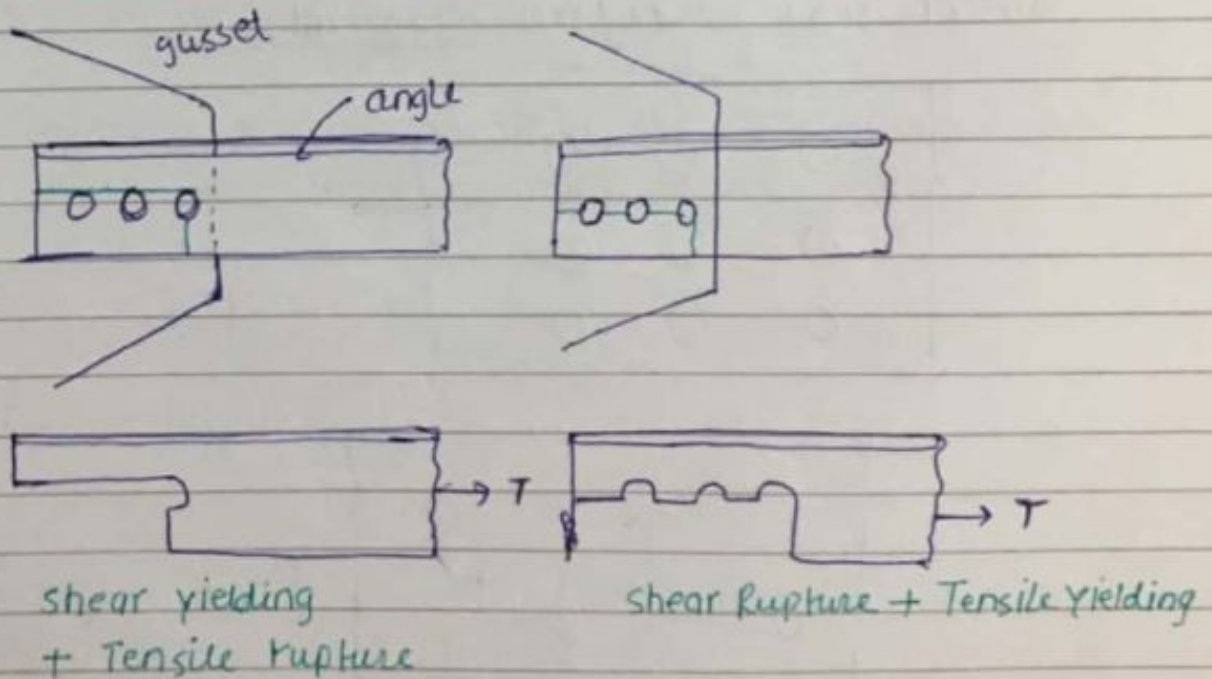 gusset
angle
T
T
shear yielding
+ Tensile rupture
Shear Rupture + Tensile Yielding